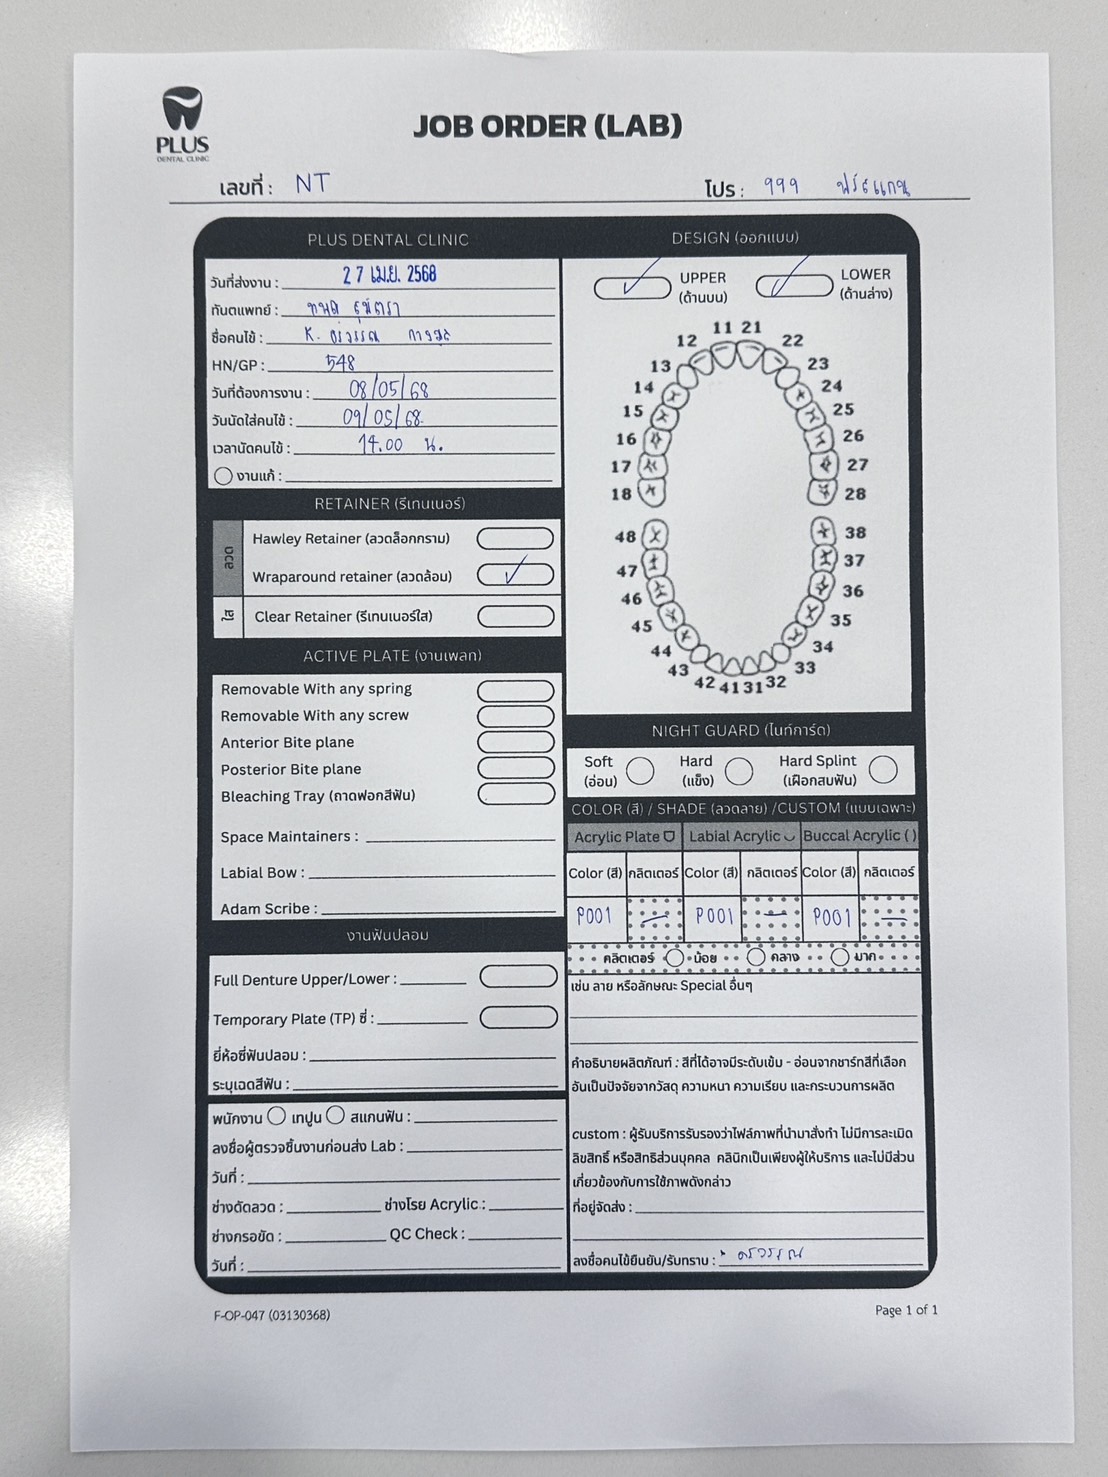 PLUS
DENTAL CLINIC
JOB ORDER (LAB)
เลขที่ : NT
โปร : 999 ฟรีสแกน
PLUS DENTAL CLINIC
วันที่ส่งงาน : 27 เม.ย. 2568
ทันตแพทย์ :
ชื่อคนไข้ : K.
HN/GP : 548
วันที่ต้องการงาน : 08/05/68
วันนัดใส่คนไข้ : 09/05/68
เวลานัดคนไข้ : 14.00 น.
งานแก้ :
RETAINER (รีเทนเนอร์)
ลวด
Hawley Retainer (ลวดล็อกกราม)
Wraparound retainer (ลวดล้อม)
ใส
Clear Retainer (รีเทนเนอร์ใส)
ACTIVE PLATE (งานเพลท)
Removable With any spring
Removable With any screw
Anterior Bite plane
Posterior Bite plane
Bleaching Tray (ถาดฟอกสีฟัน)
Space Maintainers :
Labial Bow :
Adam Scribe :
งานฟันปลอม
Full Denture Upper/Lower :
Temporary Plate (TP) ซี่ :
ยี่ห้อซี่ฟันปลอม :
ระบุเฉดสีฟัน :
พนักงาน เทปูน สแกนฟัน :
ลงชื่อผู้ตรวจชิ้นงานก่อนส่ง Lab :
วันที่ :
ช่างดัดลวด : ช่างโรย Acrylic :
ช่างกรอขัด : QC Check :
วันที่ :
DESIGN (ออกแบบ)
UPPER
(ด้านบน)
LOWER
(ด้านล่าง)
11 21
12 22
13 23
14 24
15 25
16 26
17 27
18 28
48 38
47 37
46 36
45 35
44 34
43 33
42 41 31 32
NIGHT GUARD (ไนท์การ์ด)
Soft
(อ่อน)
Hard
(แข็ง)
Hard Splint
(เฝือกสบฟัน)
COLOR (สี) / SHADE (ลวดลาย) /CUSTOM (แบบเฉพาะ)
Acrylic Plate Labial Acrylic Buccal Acrylic ( )
Color (สี) กลิตเตอร์ Color (สี) กลิตเตอร์ Color (สี) กลิตเตอร์
P001 — P001 — P001 —
คลิตเตอร์ น้อย กลาง มาก
เช่น ลาย หรือลักษณะ Special อื่นๆ
คำอธิบายผลิตภัณฑ์ : สีที่ได้อาจมีระดับเข้ม - อ่อนจากชาร์ทสีที่เลือก
อันเป็นปัจจัยจากวัสดุ ความหนา ความเรียบ และกระบวนการผลิต
custom : ผู้รับบริการรับรองว่าไฟล์ภาพที่นำมาสั่งทำ ไม่มีการละเมิด
ลิขสิทธิ์ หรือสิทธิส่วนบุคคล คลินิกเป็นเพียงผู้ให้บริการ และไม่มีส่วน
เกี่ยวข้องกับการใช้ภาพดังกล่าว
ที่อยู่จัดส่ง :
ลงชื่อคนไข้ยืนยัน/รับทราบ :
F-OP-047 (03130368)
Page 1 of 1